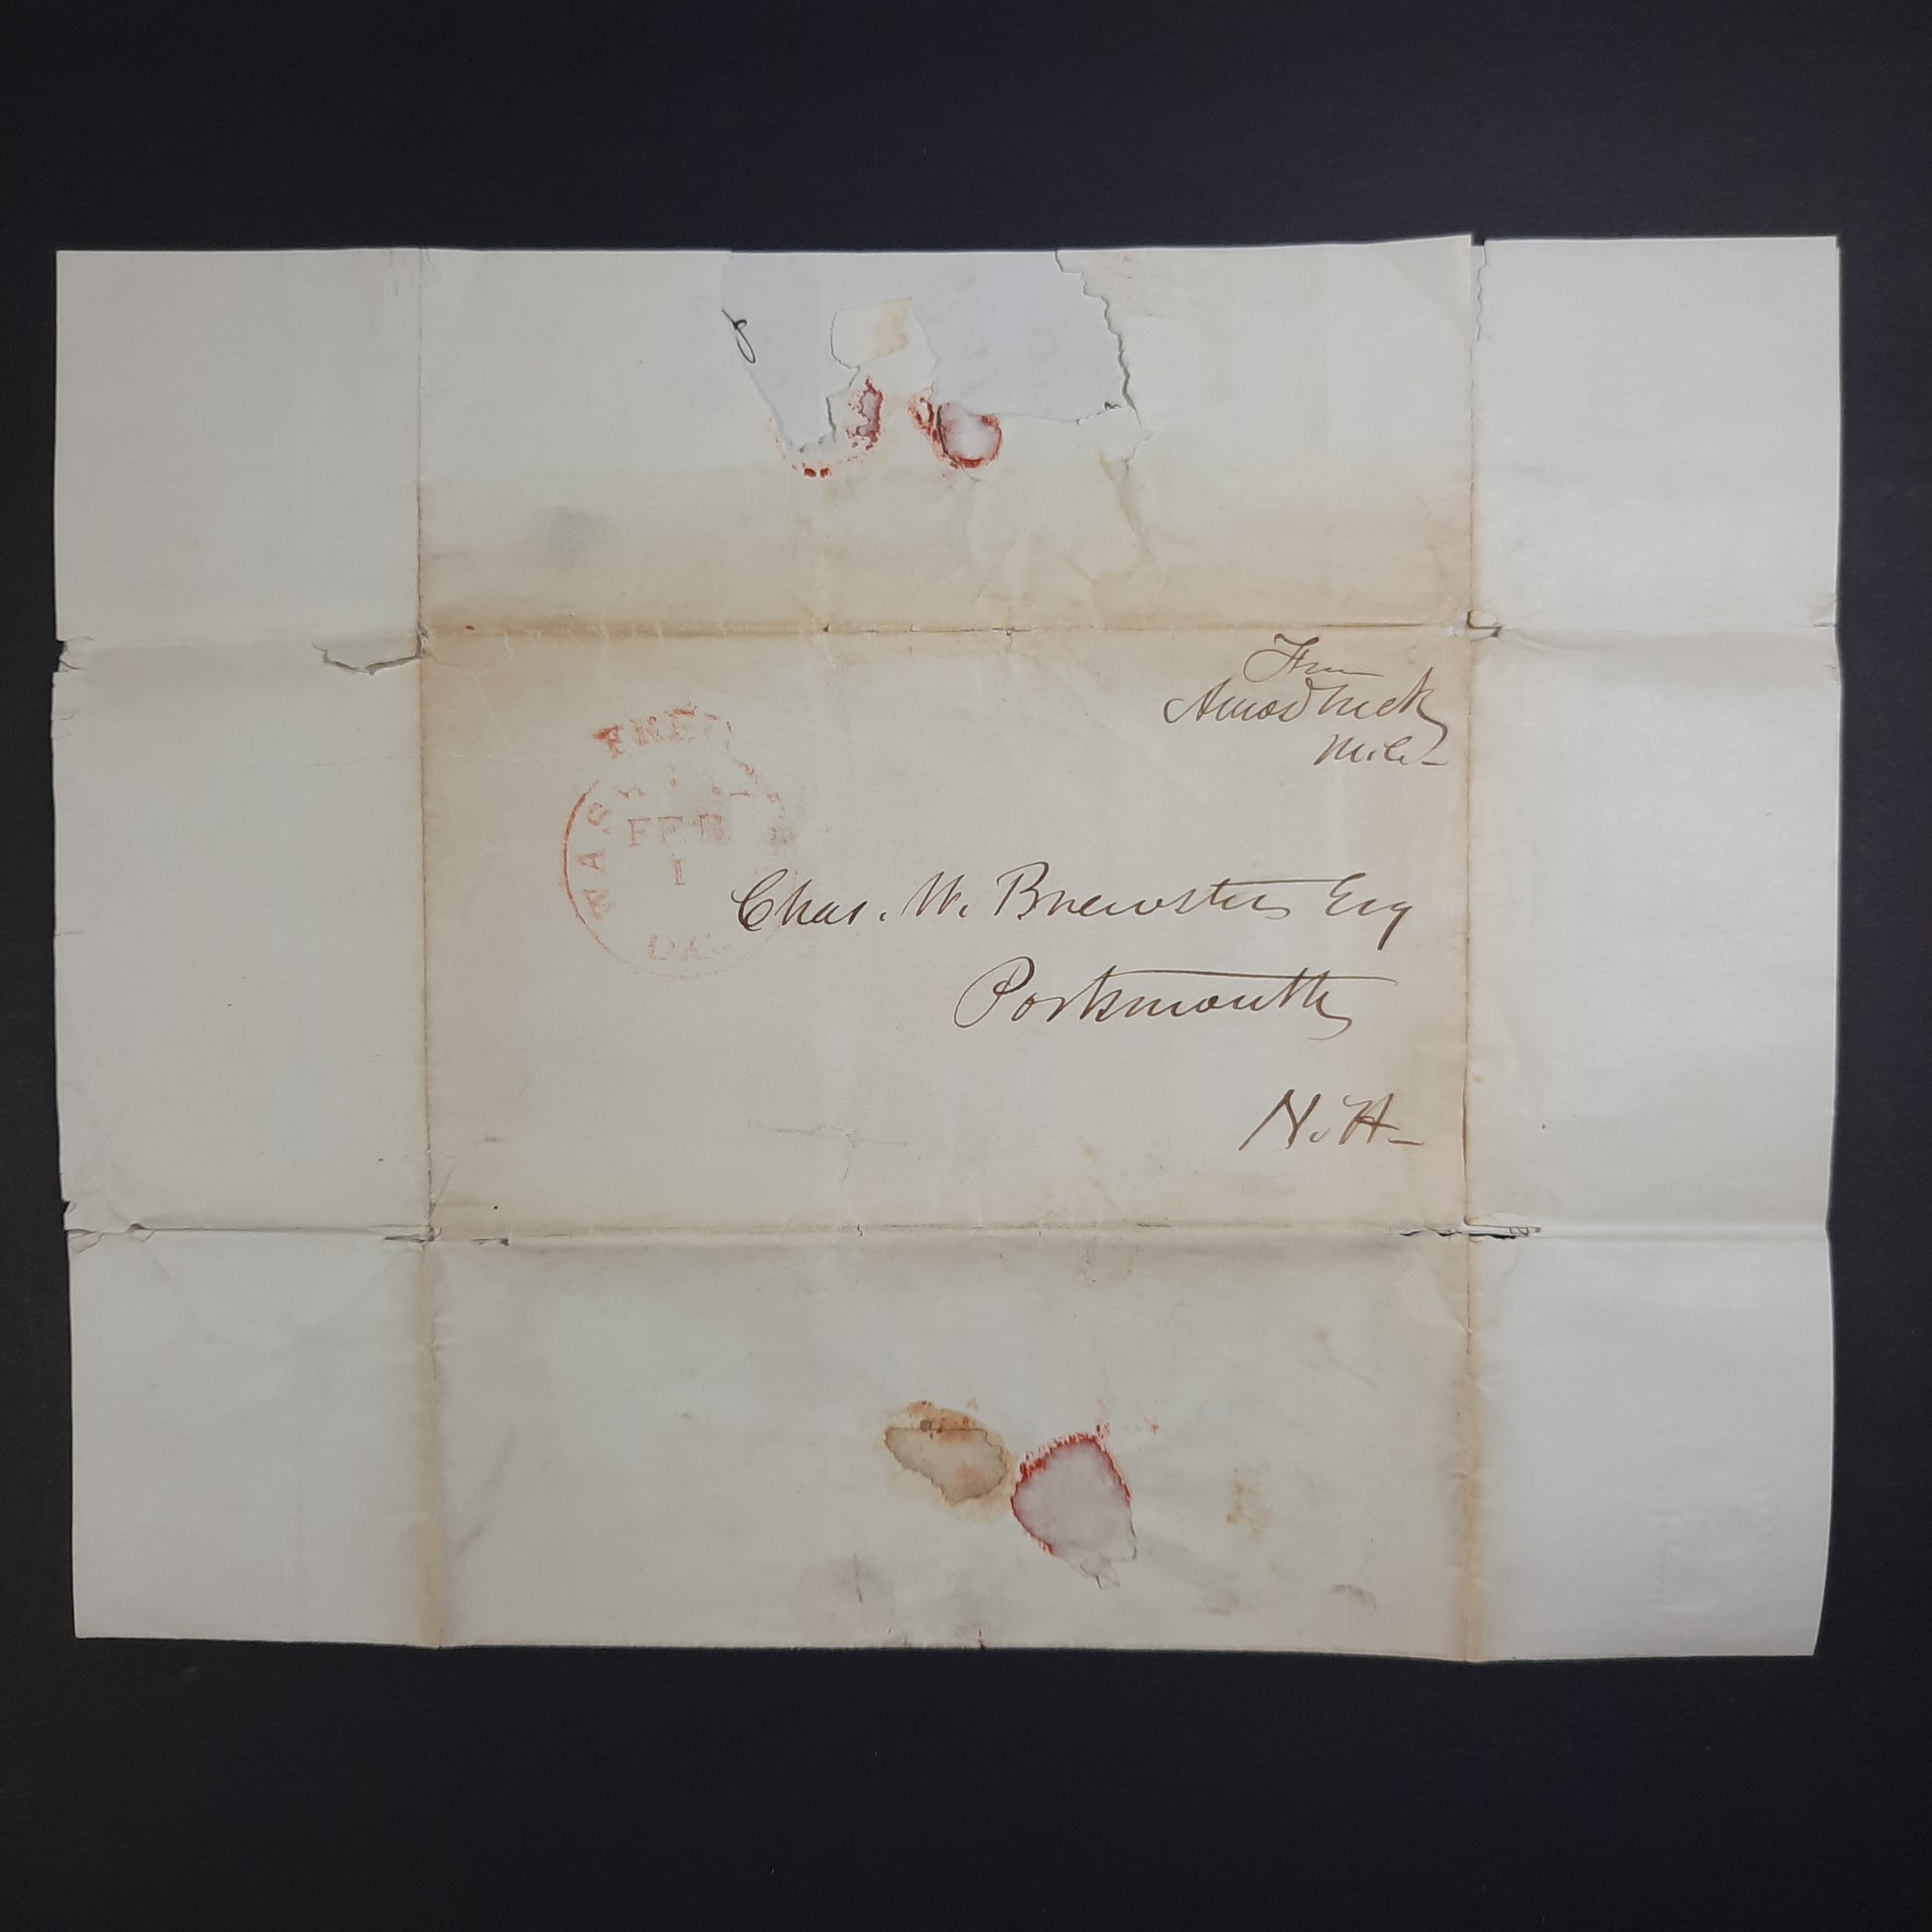 Free
Amos Tuck
M.C.
FREE
WASH
FEB
1
D.C.
Chas. W. Brewster Esq
Portsmouth
N.H.